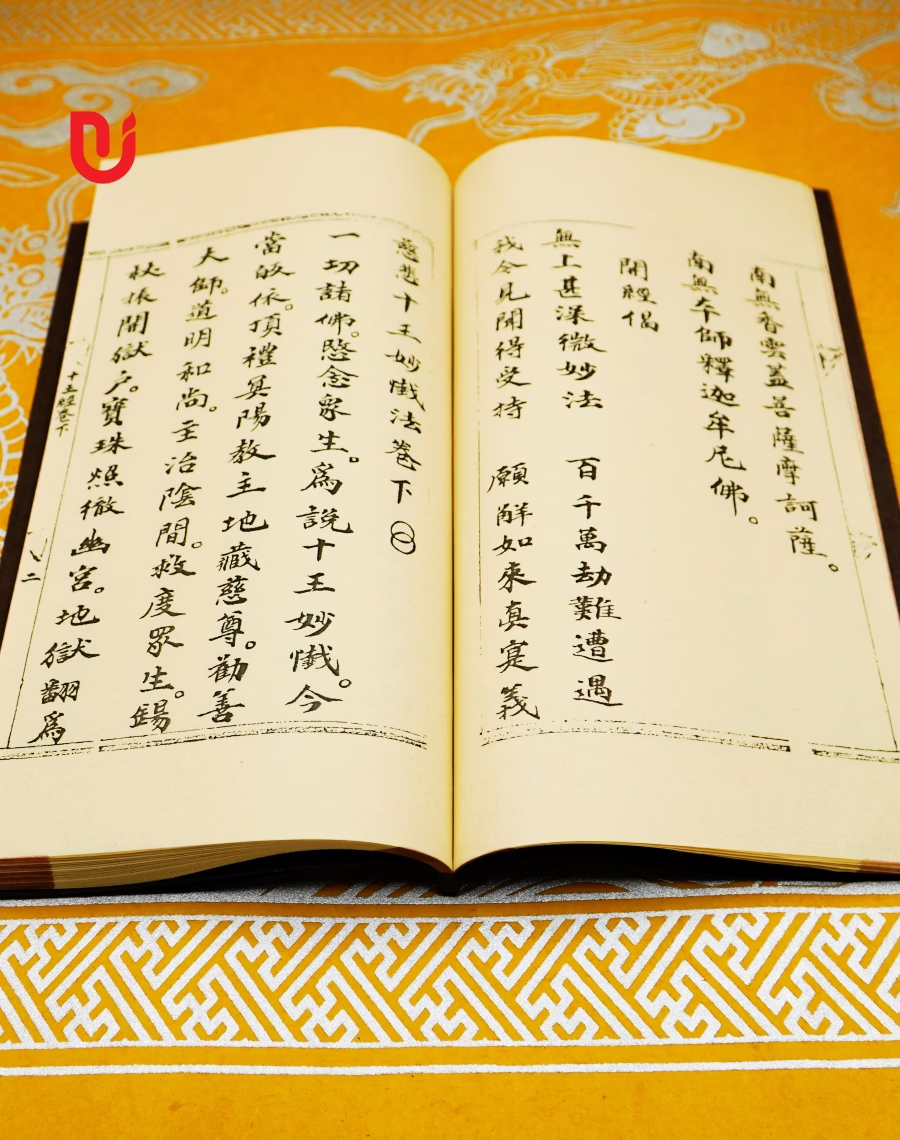 南無香雲蓋菩薩摩訶薩。
南無本師釋迦牟尼佛。
開經偈
無上甚深微妙法 百千萬劫難遭遇
我今見聞得受持 願解如來真寔義
慈悲十王妙懺法卷下
一切諸佛。愍念眾生。為說十王妙懺。今
當皈依。頂禮冥陽教主地藏慈尊。勸善
大師。道明和尚。主治陰間。救度眾生。錫
杖振開獄戶。寶珠照徹幽宮。地獄翻為
十王經卷下
二